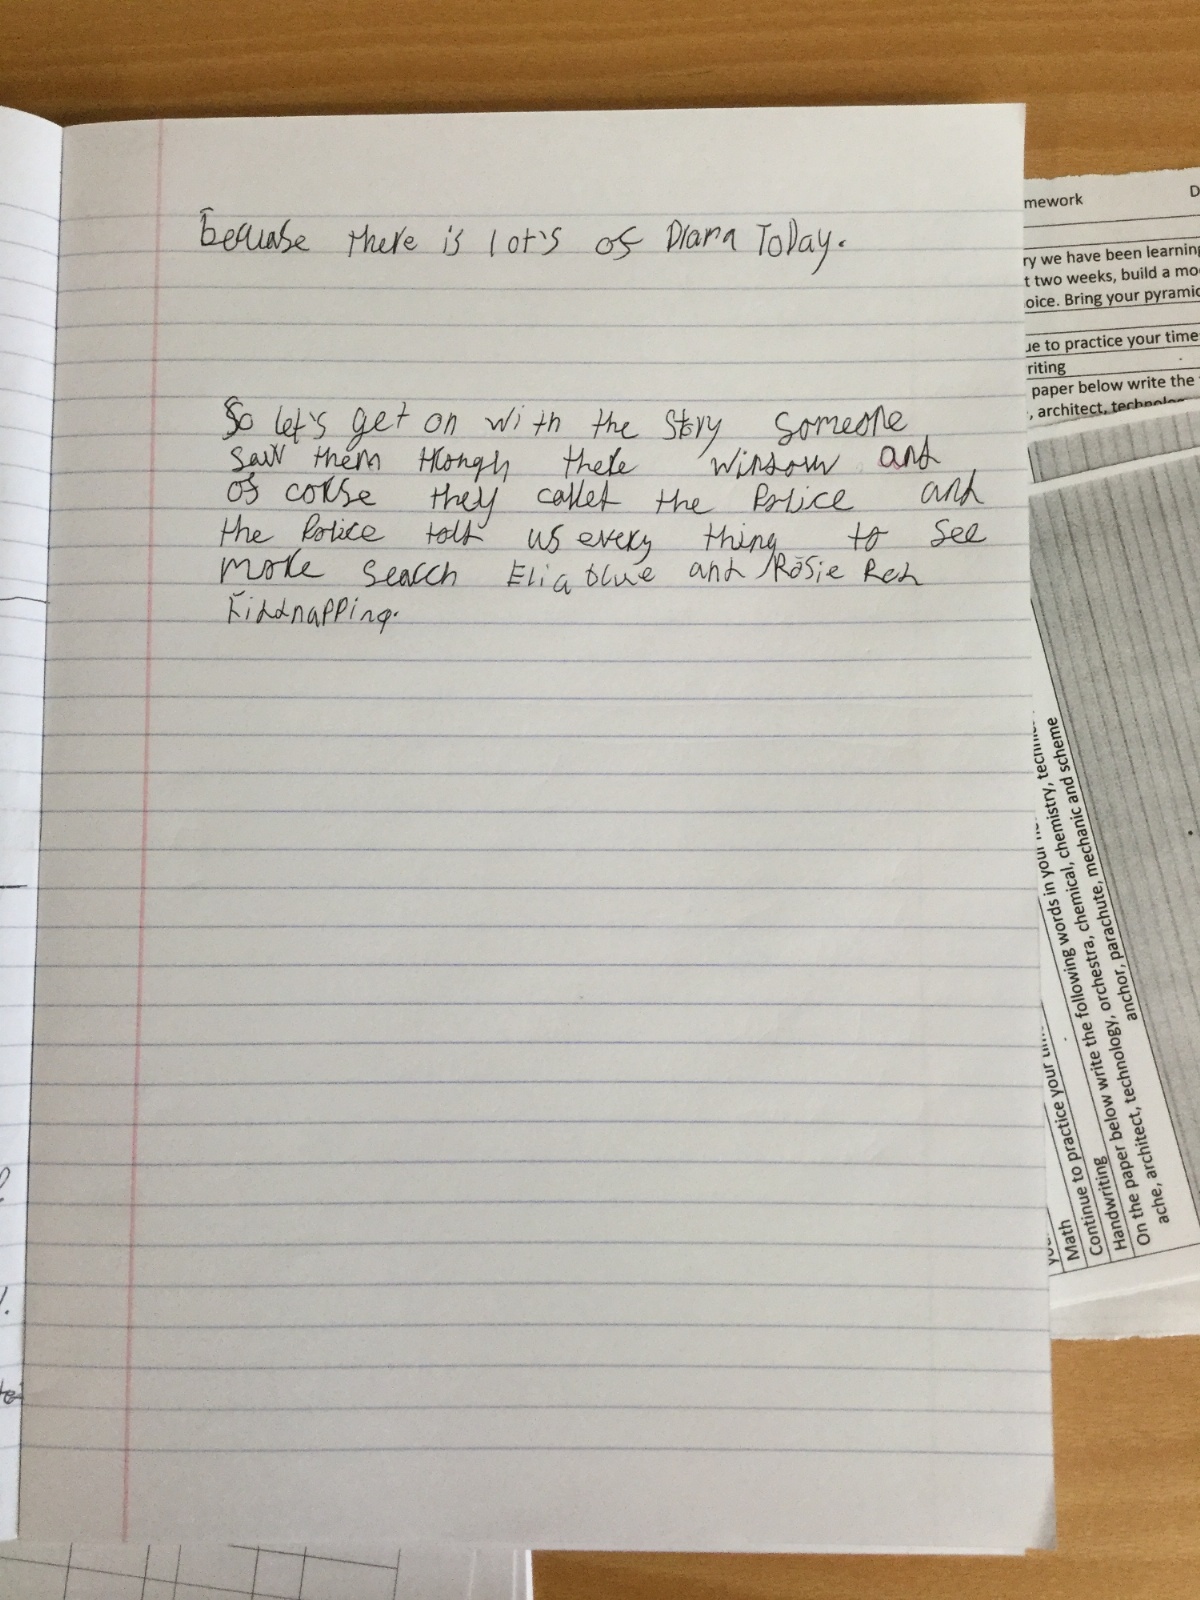 becuase there is lot's of Drama Today.
So let's get on with the Story Someone
saw them through there window and
of corse they called the Police and
the Police told us every thing to see
more search Elia blue and Rosie Red
kiddnapping.
mework
D
ry we have been learning
t two weeks, build a mo
oice. Bring your pyramid
ue to practice your time
riting
paper below write the
, architect, technolog
Math
Continue to practice your tim
Continue write the following words in your ho technic
Handwriting
On the paper below write orchestra, chemical, chemistry,
ache, architect, technology, anchor, parachute, mechanic and scheme